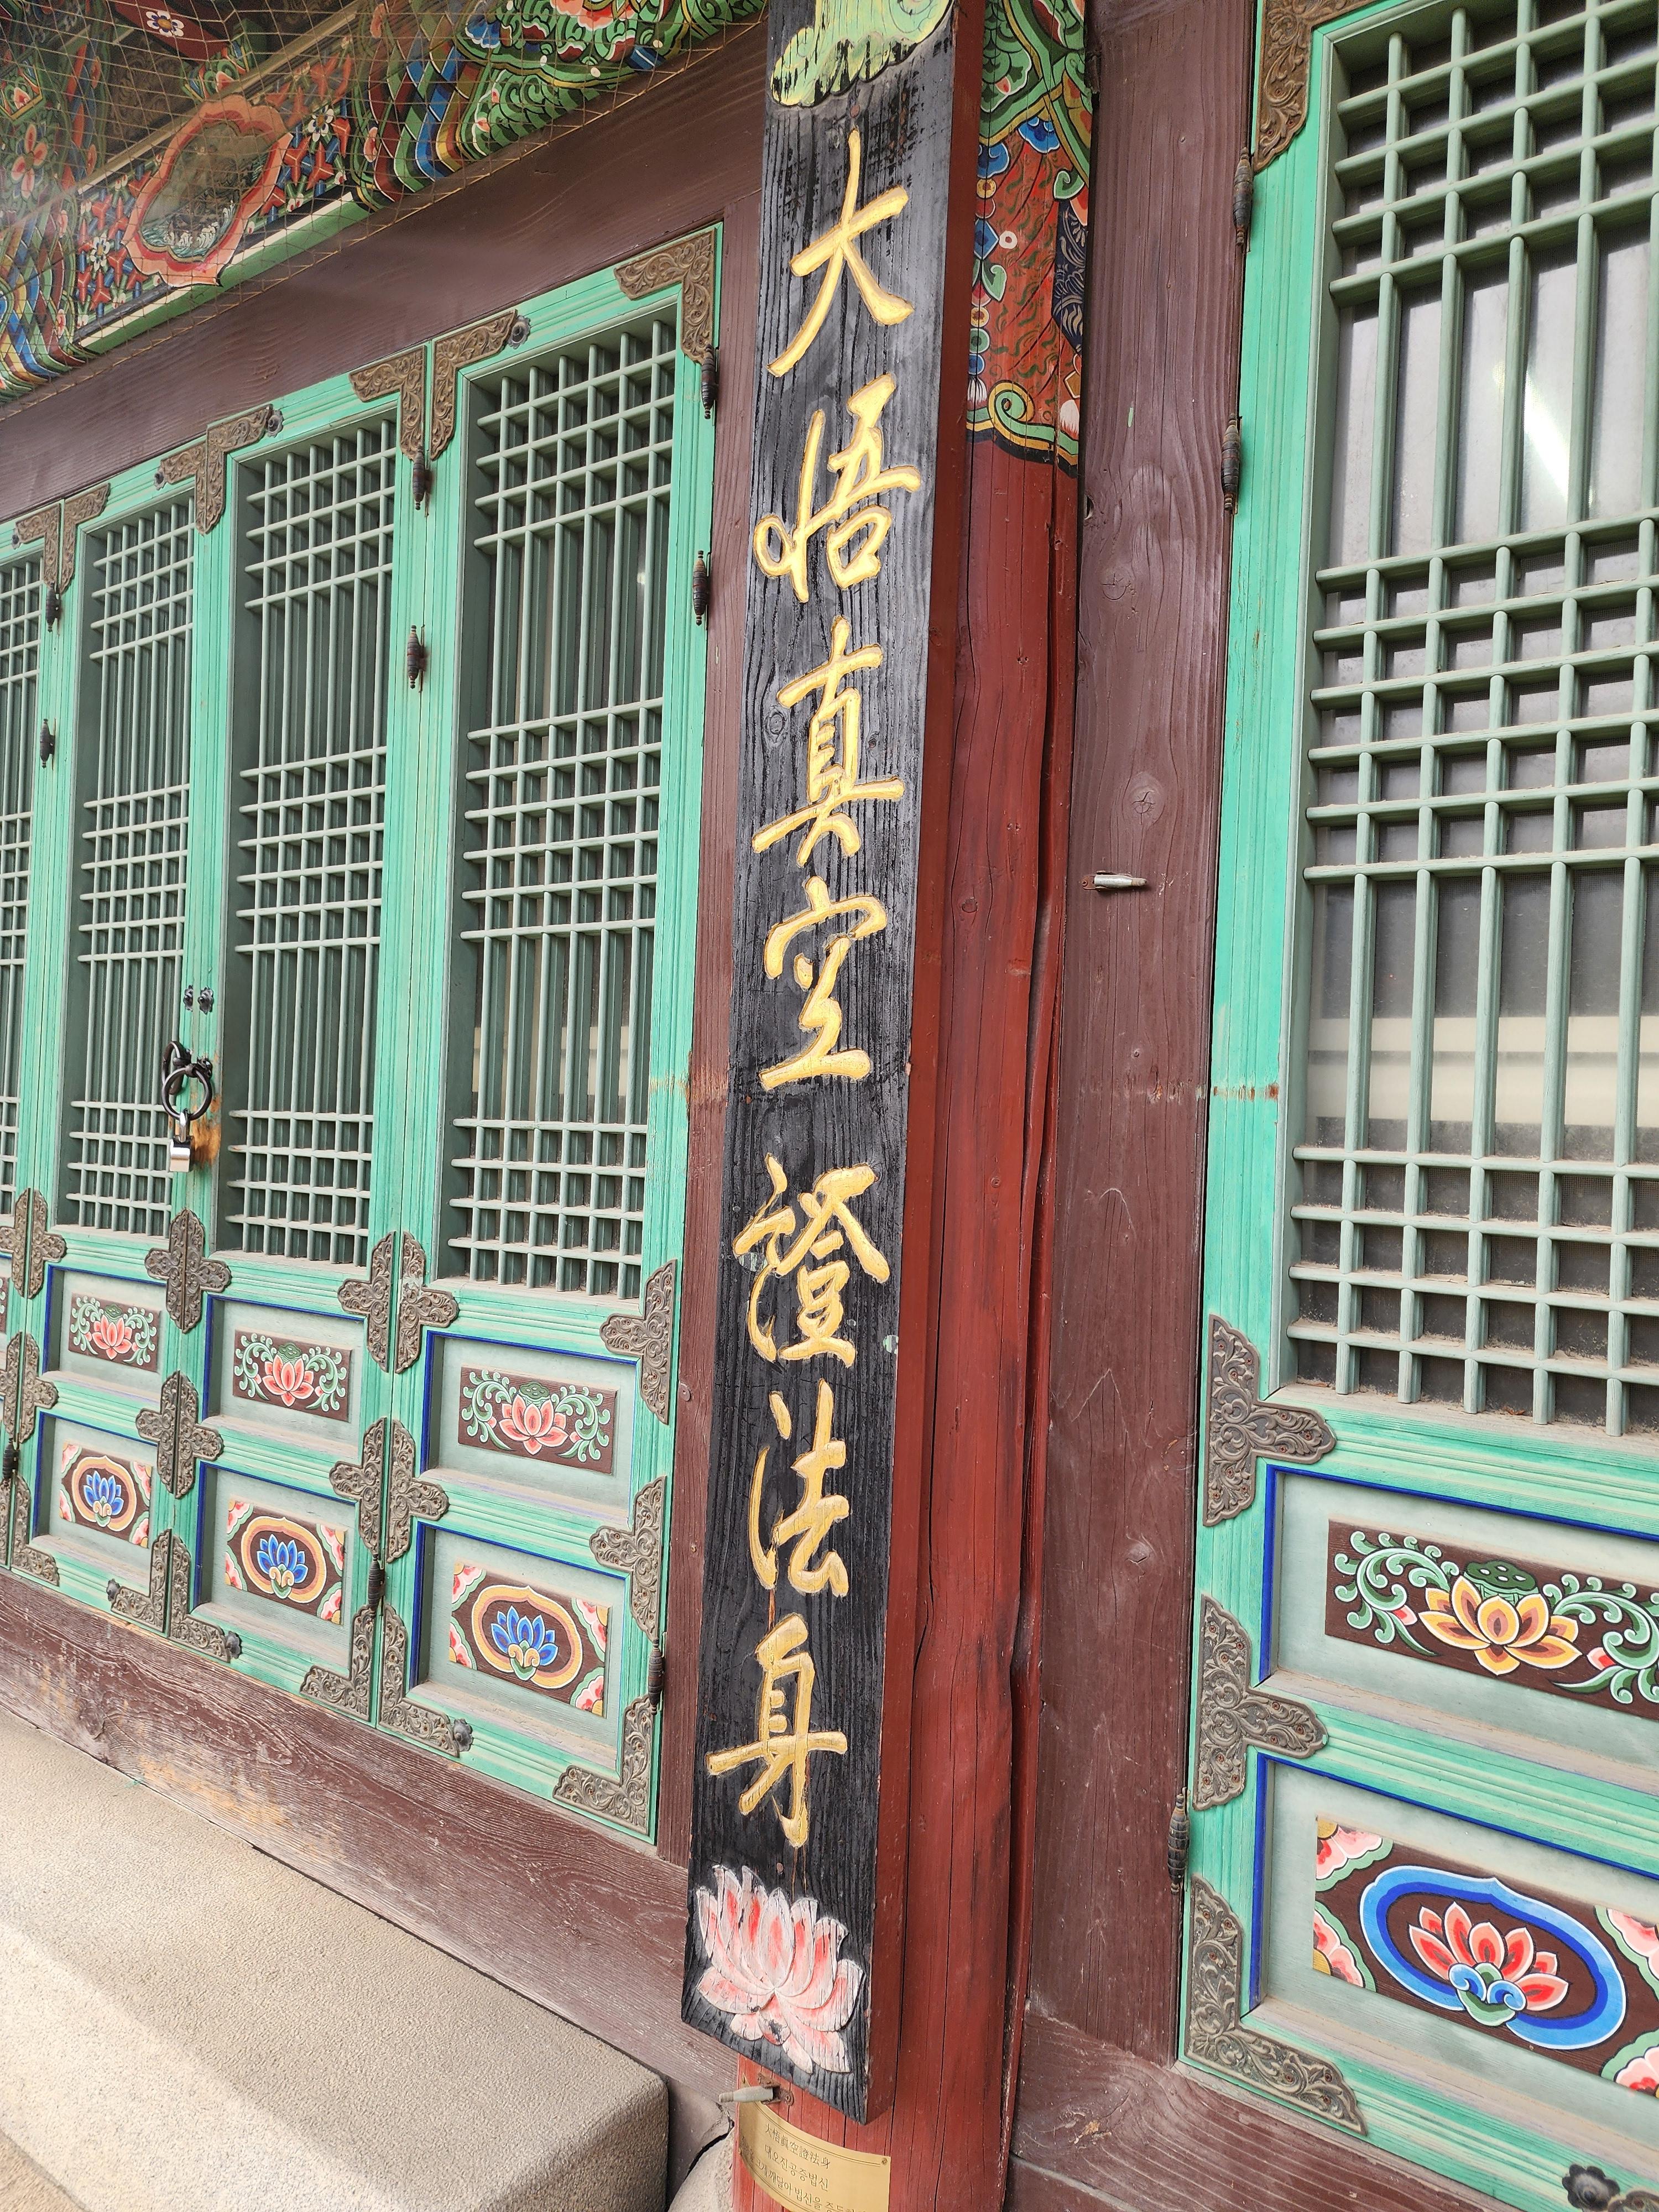 大悟真空證法身
大悟眞空證法身
대오진공증법신
깨달아 법신을